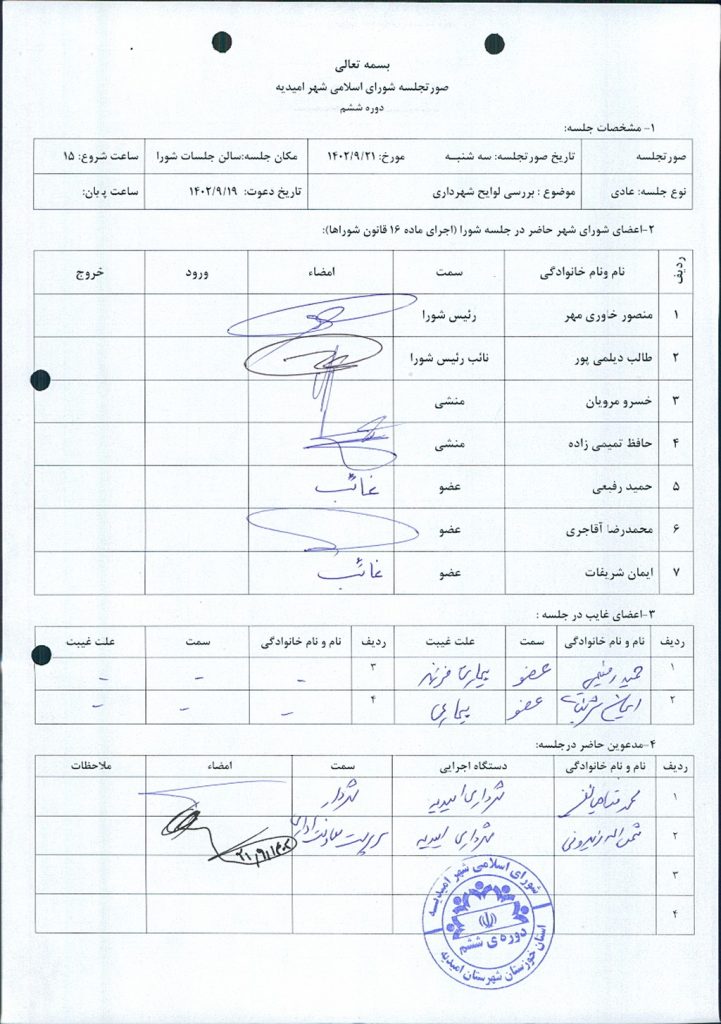 بسمه تعالی
صورتجلسه شورای اسلامی شهر امیدیه
دوره ششم
۱- مشخصات جلسه:
صورتجلسه تاریخ صورتجلسه: سه شنبه مورخ: ۱۴۰۲/۹/۲۱ مکان جلسه:سالن جلسات شورا ساعت شروع: ۱۵
نوع جلسه: عادی موضوع : بررسی لوایح شهرداری تاریخ دعوت: ۱۴۰۲/۹/۱۹ ساعت پایان:
۲-اعضای شورای شهر حاضر در جلسه شورا (اجرای ماده ۱۶ قانون شوراها):
ردیف نام ونام خانوادگی سمت امضاء ورود خروج
۱ منصور خاوری مهر رئیس شورا
۲ طالب دیلمی پور نائب رئیس شورا
۳ خسرو مرویان منشی
۴ حافظ تمیمی زاده منشی
۵ حمید رفیعی عضو غائب
۶ محمدرضا آقاجری عضو
۷ ایمان شریفات عضو غائب
۳-اعضای غایب در جلسه :
ردیف نام و نام خانوادگی سمت علت غیبت ردیف نام و نام خانوادگی سمت علت غیبت
۱ حمید رفیعی عضو بیماری فرزند ۳ - - -
۲ ایمان شریفات عضو بیماری ۴ - - -
۴-مدعوین حاضر درجلسه:
ردیف نام و نام خانوادگی دستگاه اجرایی سمت امضاء ملاحظات
۱ محمد شهرداری امیدیه شهردار
۲ شهرداری امیدیه سرپرست معاونت اداری ۱۴۰۲/۹/۲۱
۳
۴
شورای اسلامی شهر امیدیه
دوره ی ششم
استان خوزستان شهرستان امیدیه